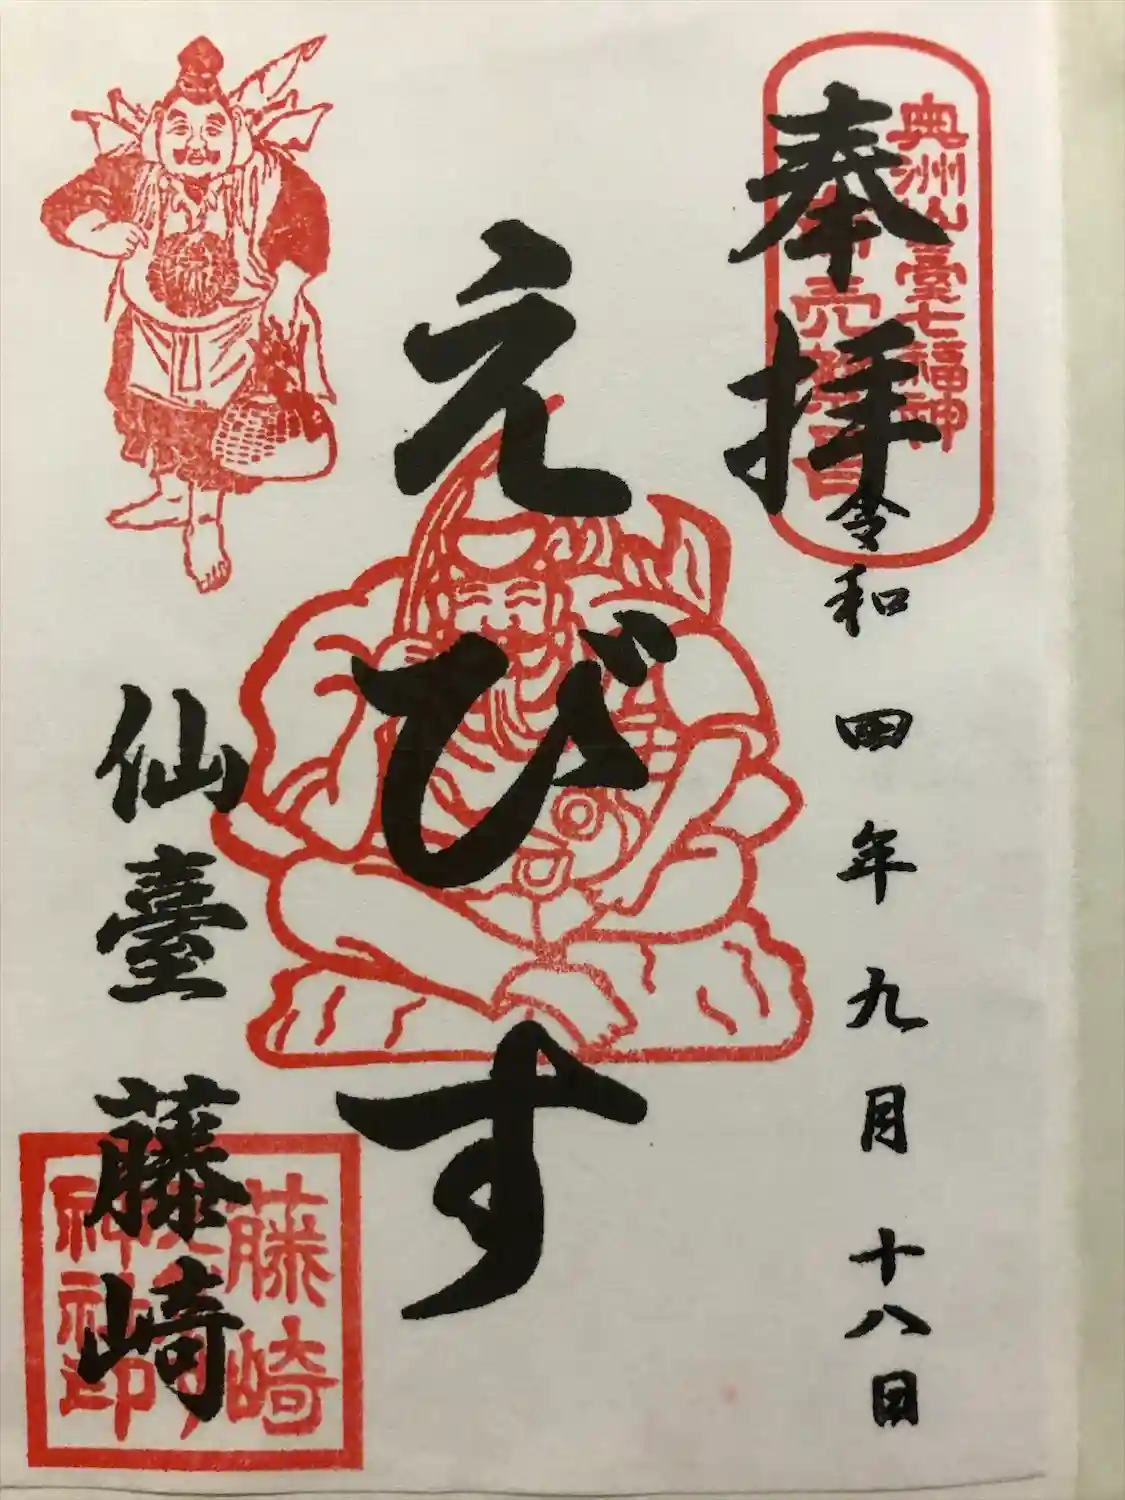 奥州仙臺七福神
奉拝
令和四年九月十八日
えびす
仙臺 藤崎
藤崎
神社印